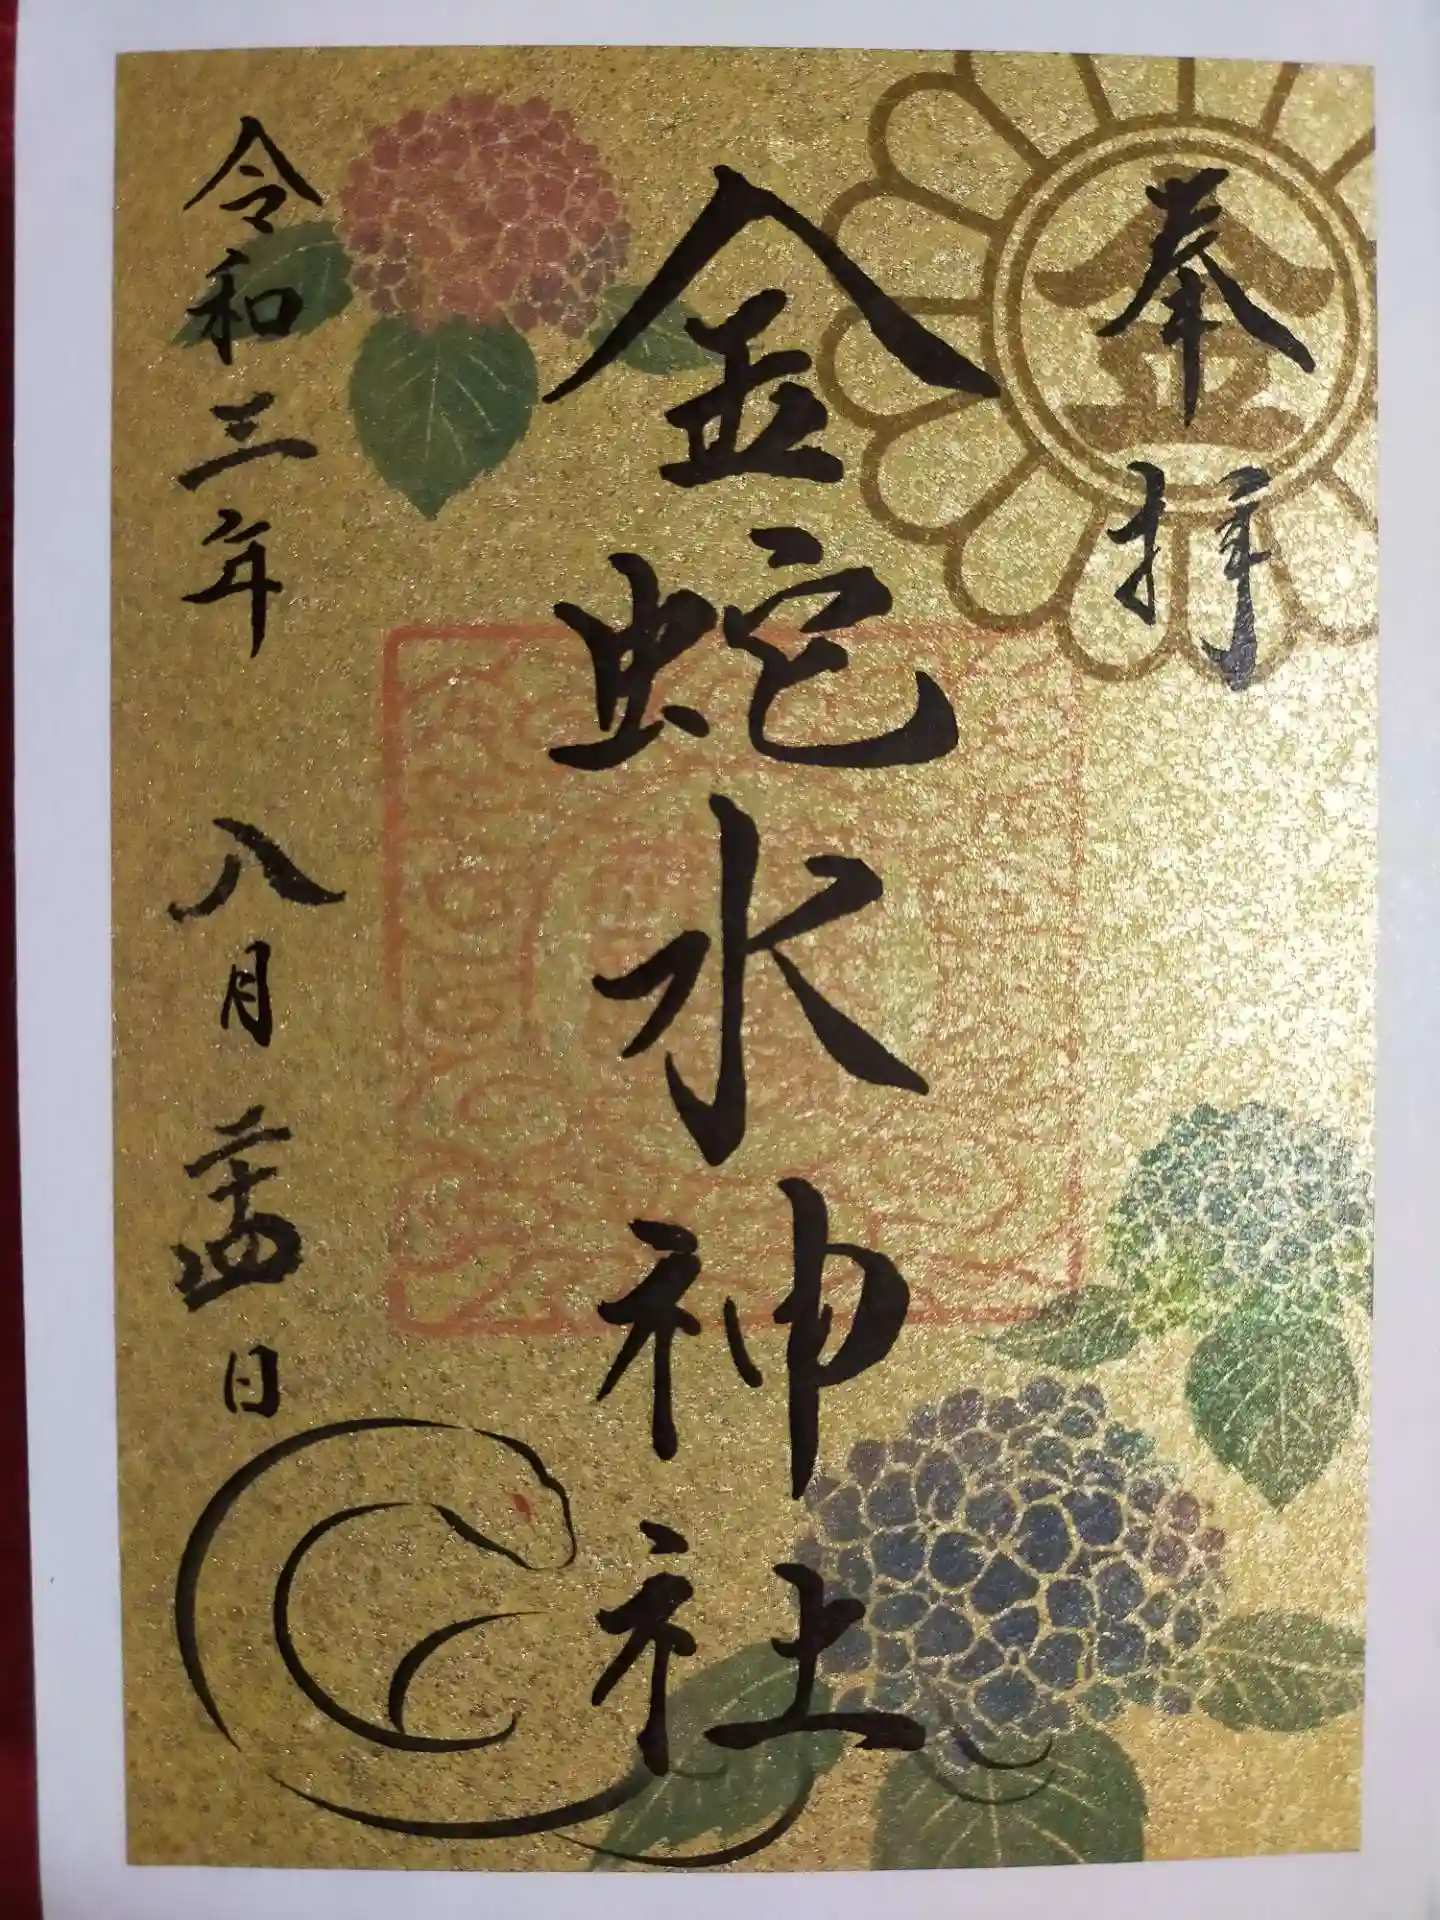 奉拝
金
金蛇水神社
令和三年 八月二十四日